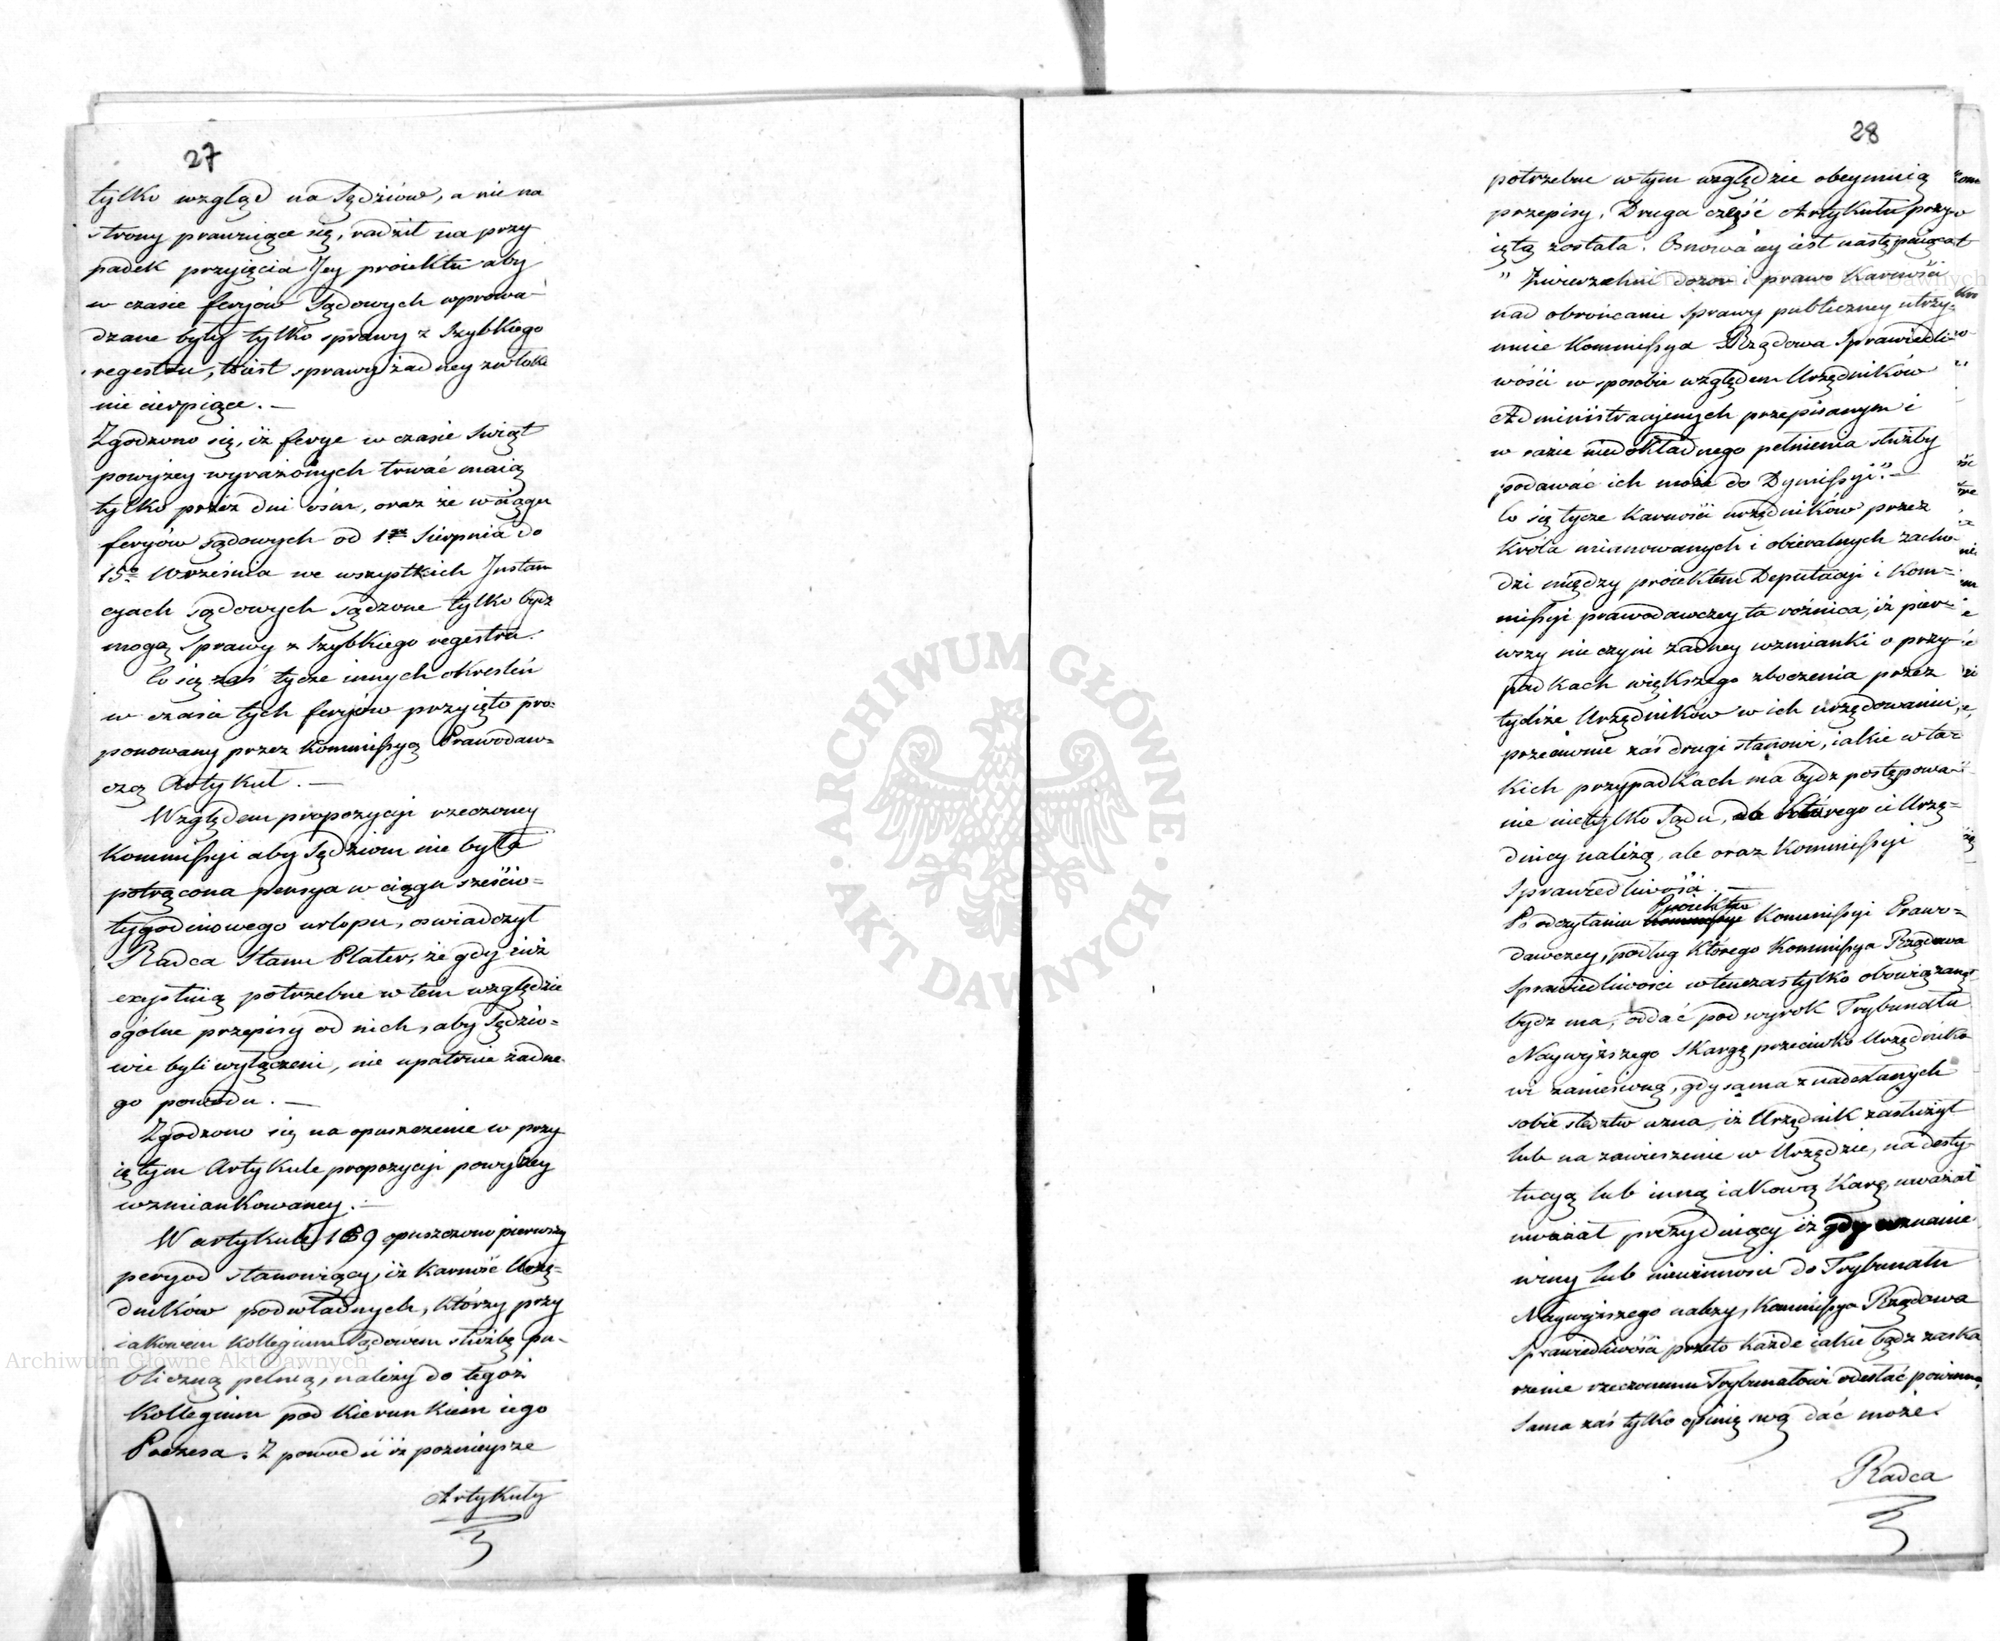 27
tylko wzgląd na Sędziów, a nie na
strony prawuiące się, radził na przy
padek przyięcia Jey proiektu aby
w czasie feryów Sądowych wprowa-
dzane były tylko sprawy z Szybkiego
regestru, to iest sprawy żadney zwłoki
nie cierpiące. —
Zgodzono się, iż ferye w czasie Swiąt
powyżey wyrażonych trwać maią
tylko przez dni ośm, oraz że w ciągu
feryów sądowych od 1go Sierpnia do
15go Września we wszystkich Instan
cyach sądowych sądzone tylko bydz
mogą sprawy z szybkiego regestru.
Co się zaś tycze innych okreslen
w czasie tych feryów przyięto pro-
ponowany przez Kommissyą Prawodaw-
czą Artykuł. —
Względem propozycyi rzeczoney
Kommissyi aby Sędziom nie była
potrącona pensya w ciągu sześcio-
tygodniowego urlopu, oswiadczył
Radca Stanu Plater, że gdy iuż
exystuią potrzebne w tem względzie
ogólne przepisy od nich, aby Sędzio-
wie byli wyłączeni, nie upatruie żadne-
go powodu. —
Zgodzono się na opuszczenie w przy
iętym Artykule propozycyi powyżey
wzmiankowaney. —
W artykule 169 opuszczono pierwszy
peryod stanowiący, iż karność Urzę-
dników podwładnych, którzy przy
iakowem Kollegium Sądowem służbę pu-
bliczną pełnią, należy do tegoż
Kollegium pod kierunkiem iego
Prezesa. Z powodu iż poznieysze
Artykuły
28
potrzebne w tym względzie obeymuią
przepisy. Druga część Artykułu przy-
iętą została. Osnowa iey iest następuiąca
" Zwierzchni dozor i prawo karności
nad obrońcami sprawy publiczney utrzy-
muie Kommissya Rządowa Sprawiedli-
wości w sposobie względem Urzędników
Administracyinych przepisanym i
w razie niedokładnego pełnienia służby
podawać ich może do Dymissyi." —
Co się tycze karności urzędników przez
Króla mianowanych i obieralnych zacho-
dzi między proiektem Deputacyi i Kom-
missyi prawodawczey ta różnica, iż pier-
wszy nie czyni żadney wzmianki o przy-
padkach większego zboczenia przez
tychże Urzędników w ich urzędowaniu,
przeciwnie zaś drugi stanowi, iakie w ta-
kich przypadkach ma bydz postępowa-
nie nietylko Sądu, do którego ci Urzę-
dnicy należą, ale oraz Kommissyi
Sprawiedliwości.
Po odczytaniu Proiektu Kommissyi Prawo-
dawczey, podług którego Kommissya Rządowa
Sprawiedliwości wtenczas tylko obowiązaną
bydz ma, oddać pod wyrok Trybunału
Naywyższego skargę przeciwko Urzędniko
wi zaniesioną, gdy sama z nadesłanych
sobie sledztw uzna, iż Urzędnik zasłużył
lub na zawieszenie w Urzędzie, na desty-
tucyą lub inną iakową karę, uważał
uważał prezyduiący iż gdy uznanie
winy lub niewinności do Trybunału
Naywyższego należy, Kommissya Rządowa
Sprawiedliwości przeto każde iakie bądz zaska
rzenie rzeczonemu Trybunałowi odesłać powinna,
Sama zaś tylko opinię swą dać może.
Radca
ARCHIWUM GŁÓWNE · AKT DAWNYCH ·
Archiwum Główne Akt Dawnych
Archiwum Główne Akt Dawnych